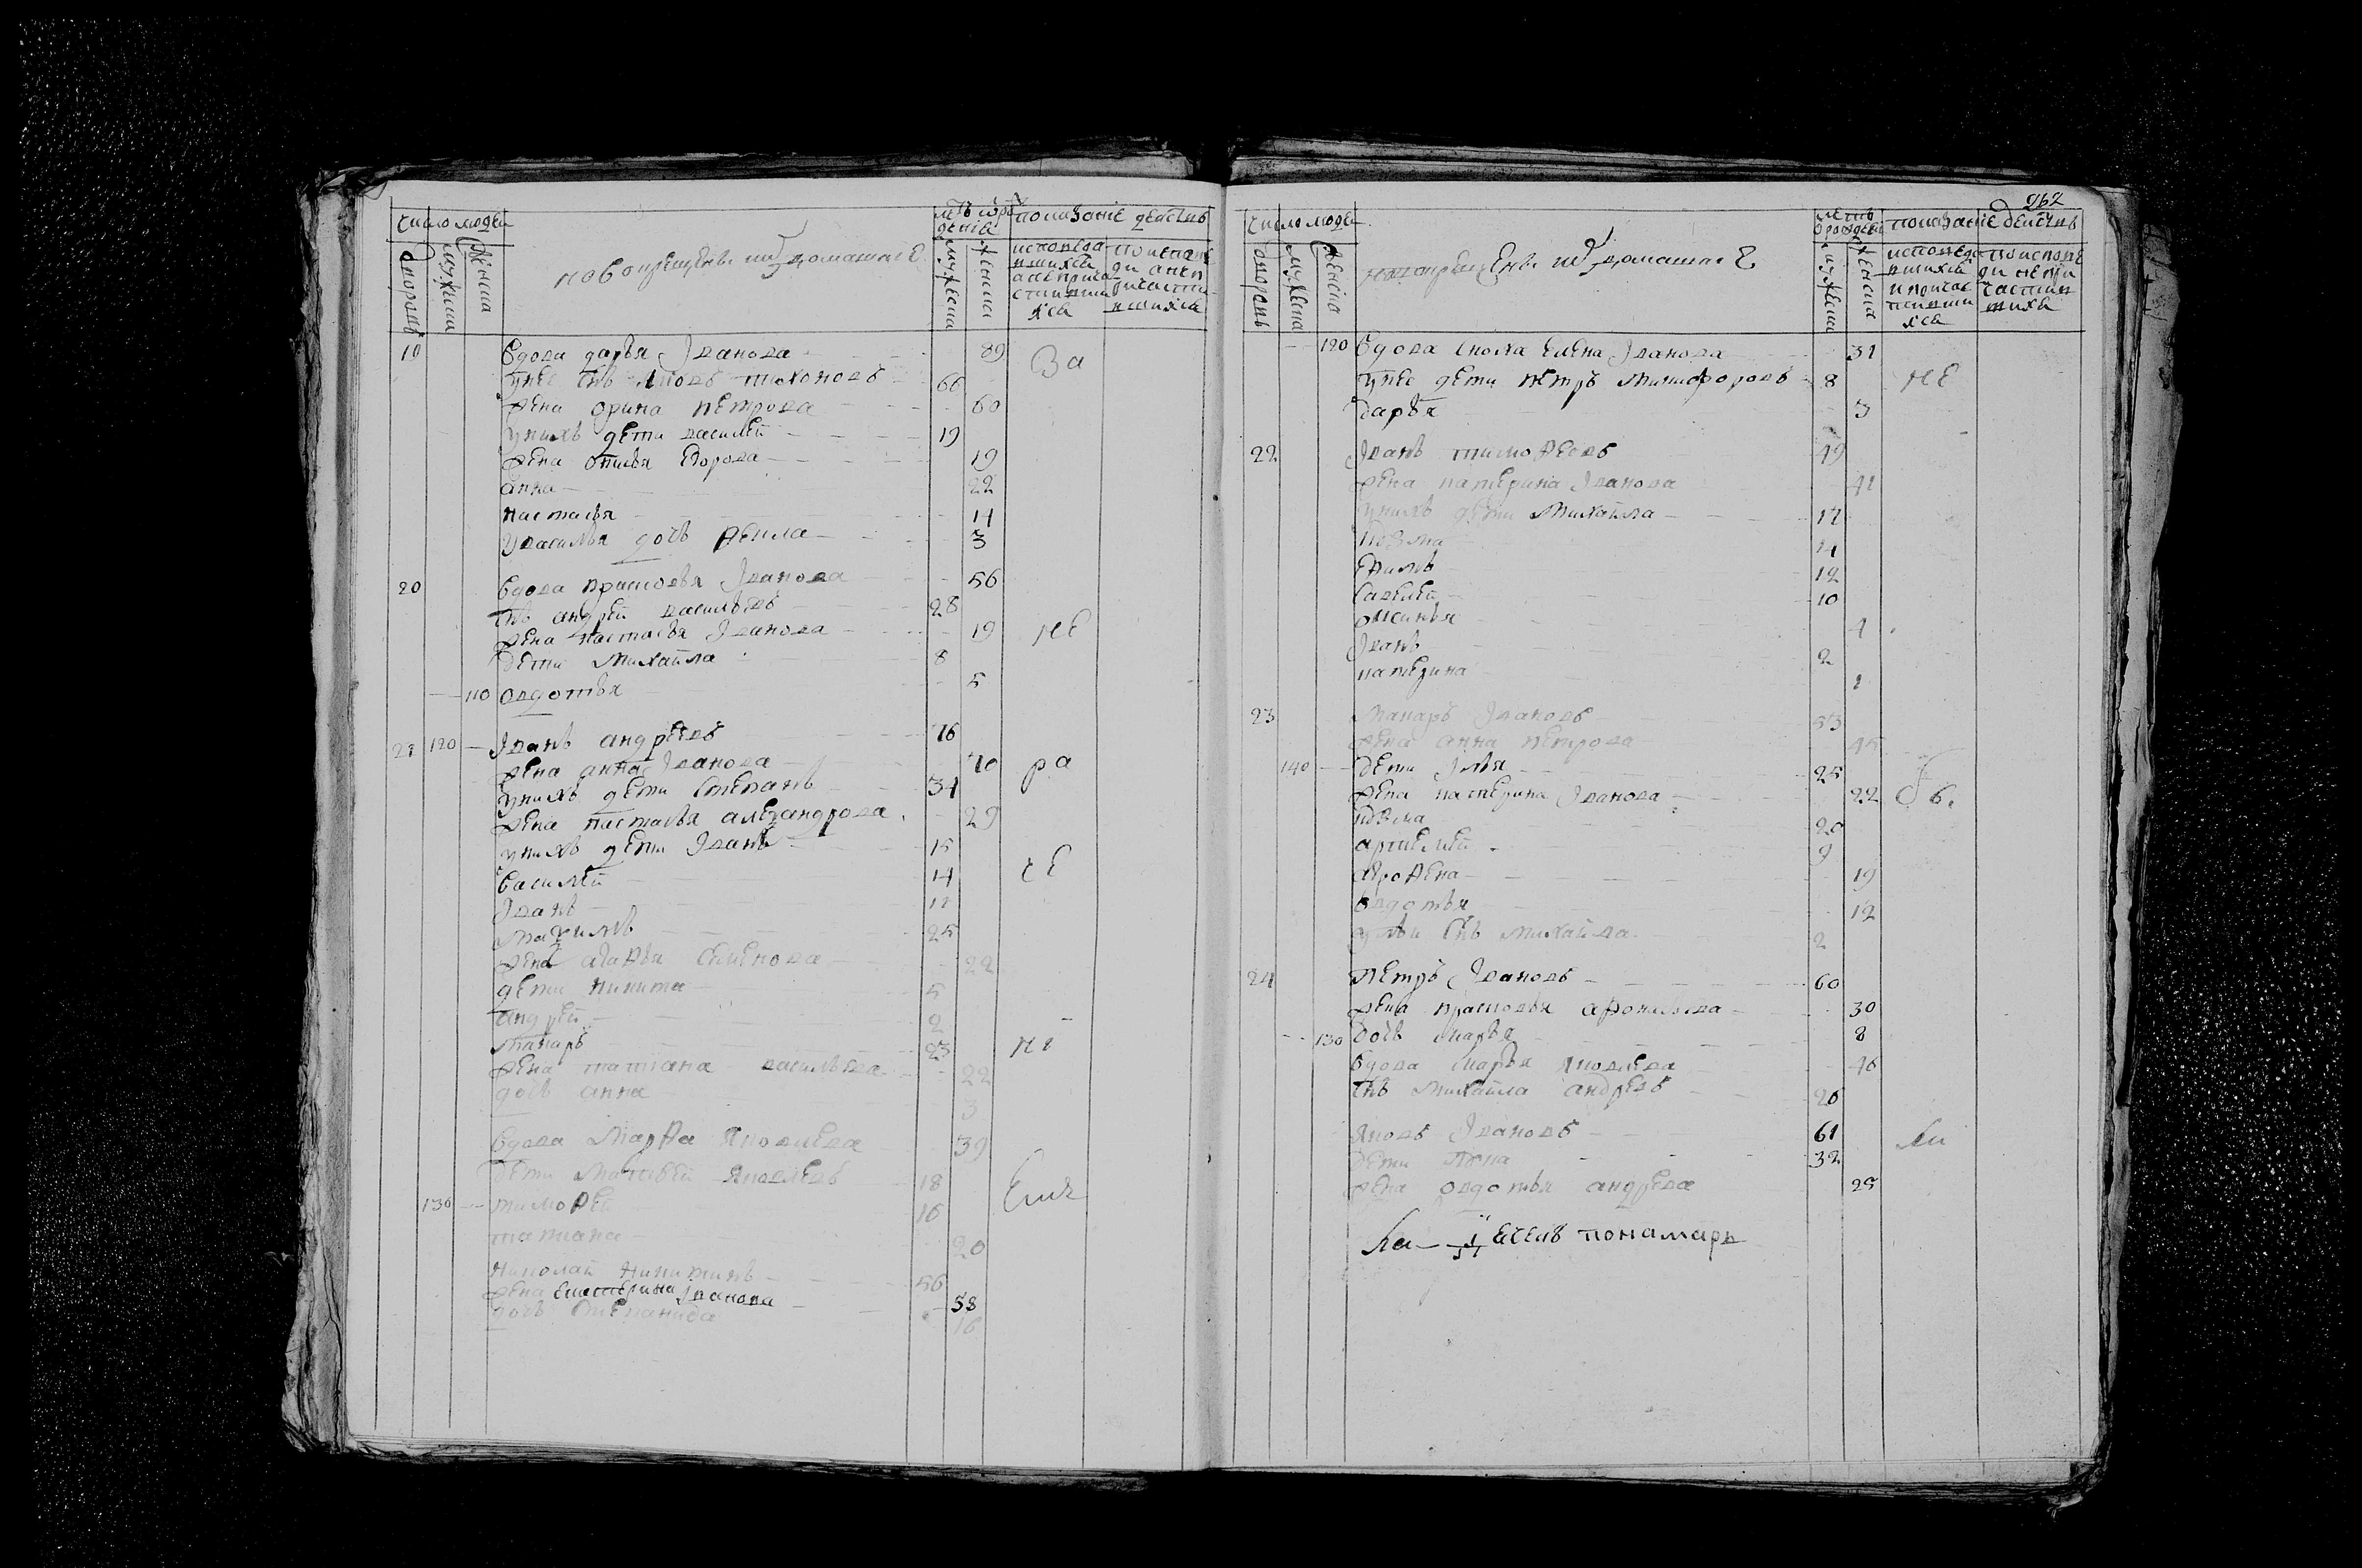 число людей
дворовъ
мужеска
женска
новокрещены и их домашние
лѣтъ отъ рождения
мужеска
женска
показание действъ
исповедавшихся а не причастившихся
19 вдова дарья Iванова 89 За
у нее снъ Яковъ тихоновъ 66
жена орина петрова 60
у нихъ дети василей 19
жена егорова 19
анна 22
настасья 14
у василья дочь Фекла 3
20 вдова прасковья Iванова 56
снъ андрей васильевъ 28
жена настасья Iванова 19 не
дети михайла 8
110 овдотья 5
21 120 Iванъ андреевъ 76
жена анна Iванова 70 ра
у нихъ дети степанъ 34
жена настасья александрова 29
у нихъ дети Iванъ 15
василей 14 че
Iванъ 11
25
жена агафья семенова 22
дети никита 5
андрей 2
макаръ 23
жена татиана васильева 22
дочь анна 3
вдова марфа яковлева 39
дети матвей яковлевъ 18
130 тимофей 16
татиана 20
николай никитинъ 56
жена екатерина iванова 58
дочь степанида 16
262
число людей
дворовъ
мужеска
женска
новокрещены и их домашние
лѣтъ от рождения
мужеска
женска
показание действъ
исповедавшихся и причастившихся
120 вдова сноха елена Iванова 31
у нее дети петръ никифоровъ 8 не
дарья 3
22 Iванъ тимофеевъ 49
жена катерина Iванова 41
у нихъ дети михайла 17
козма 14
12
савелей 10
аксинья 4
Iванъ 2
катерина 1
23 макаръ Iвановъ 53
жена анна петрова 45
140 дети Iлья 25
жена катерина Iванова 22 Сб.
козма 20
артемей 9
агрофена 19
овдотья 12
у Iльи снъ михайла 2
24 петръ Iвановъ 60
жена прасковья афонасьева 30
130 дочь марья 8
вдова марья яковлева 46
снъ михайла андреевъ 26
яковъ Iвановъ 61
дети 32
жена овдотья андреева 25
пономарь